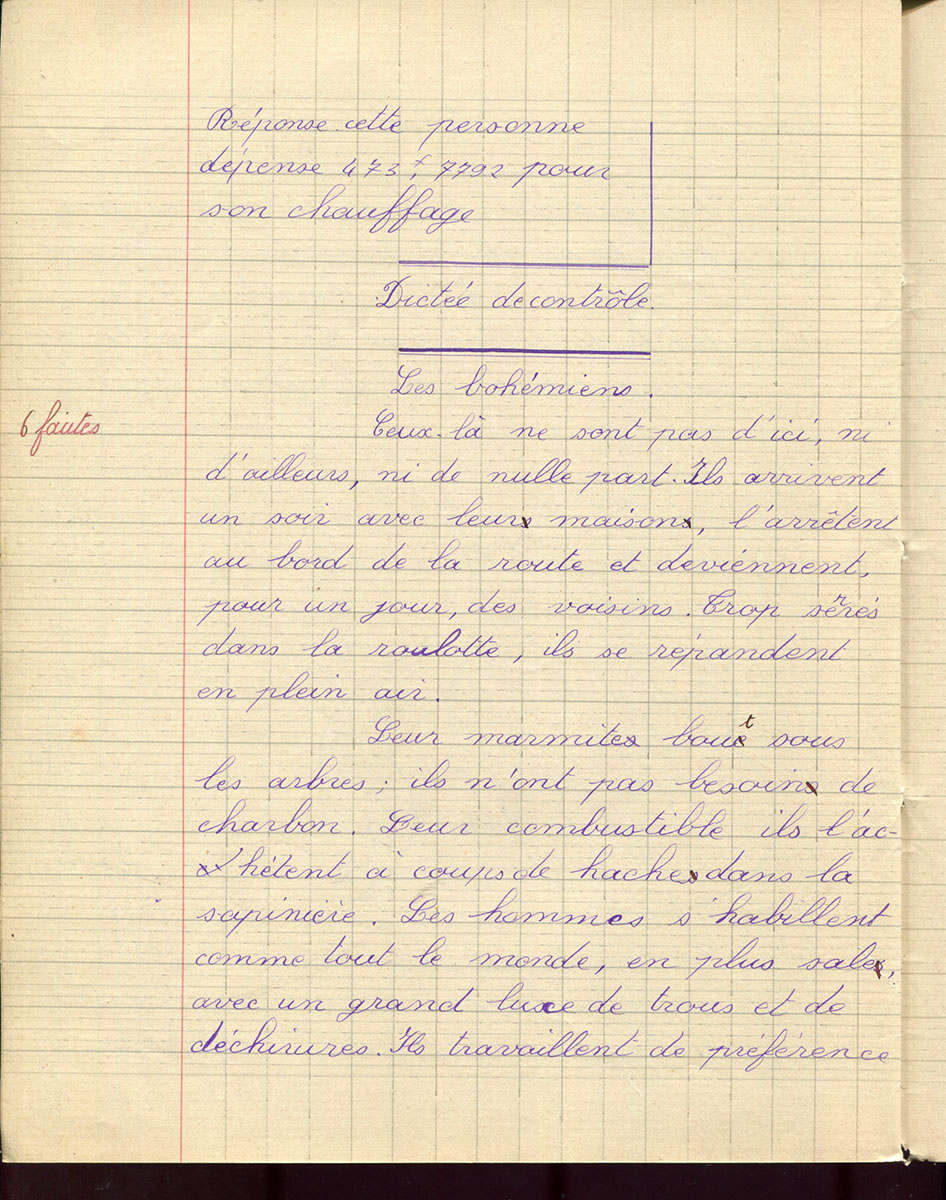 Réponse cette personne
dépense 473f, 7792 pour
son chauffage
Dictée de contrôle.
Les bohémiens.
6 fautes
Ceux-là ne sont pas d'ici, ni
d'ailleurs, ni de nulle part. Ils arrivent
un soir avec leurs maisons, l'arrêtent
au bord de la route et deviénnent,
pour un jour, des voisins. Trop sérrés
dans la roulotte, ils se répandent
en plein air.
Leur marmites bouet sous
les arbres ; ils n'ont pas besoins de
charbon. Leur combustible ils l'ac-
hétent à coups de haches dans la
sapiniére. Les hommes s'habillent
comme tout le monde, en plus sales,
avec un grand luxe de trous et de
déchirures. Ils travaillent de préférence